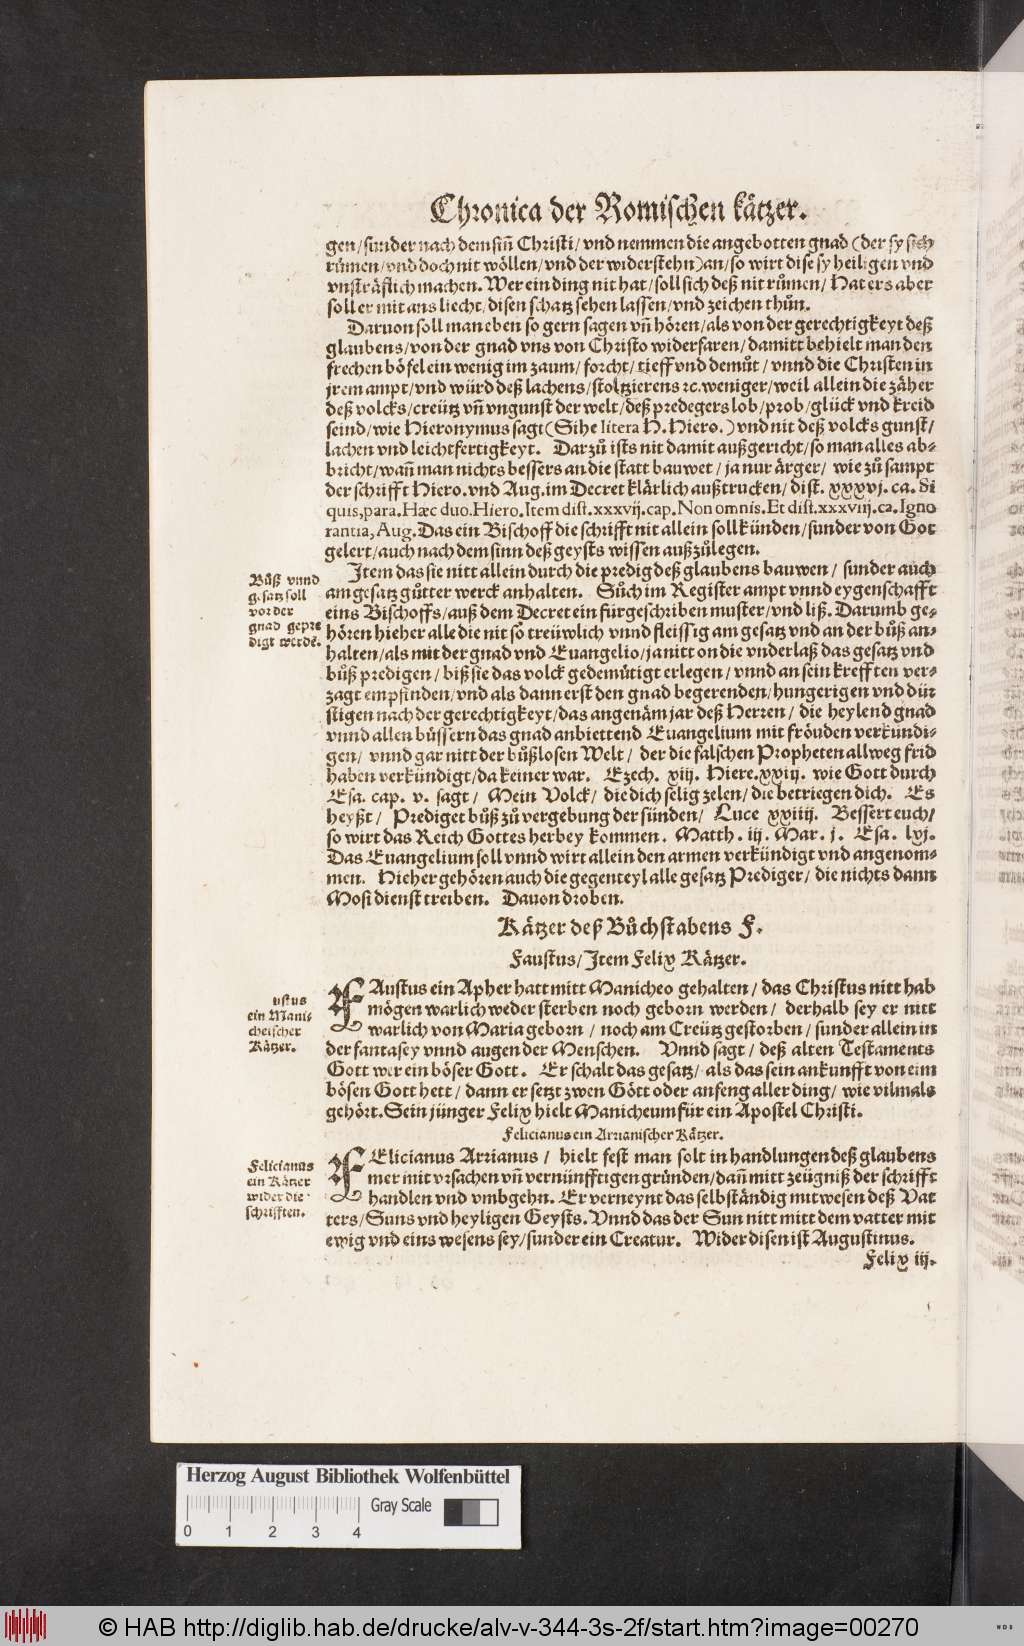 Chronica der Romischen kätzer.
gen/sunder nach dem siñ Christi/vnd nemmen die angebotten gnad (der sy sich
rümen/vnd doch nit wöllen/vnd der widerstehn)an/so wirt dise sy heiligen vnd
vnsträflich machen. Wer ein ding nit hat/soll sich deß nit rümen/Hat ers aber
soll er mit ans liecht/disen schatz sehen lassen/vnd zeichen thůn.
Daruon soll man eben so gern sagen vñ hören/als von der gerechtigkeyt deß
glaubens/von der gnad vns von Christo widerfaren/damitt behielt man den
frechen böfel ein wenig im zaum/forcht/tieff vnd demůt/vnnd die Christen in
jrem ampt/vnd würd deß lachens/stoltzierens ꝛc. weniger/weil allein die zäher
deß volcks/creütz vñ vngunst der welt/deß predegers lob/prob/glück vnd kreid
seind/wie Hieronymus sagt(Sihe litera H. Hiero.) vnd nit deß volcks gunst/
lachen vnd leichtfertigkeyt. Darzů ists nit damit außgericht/so man alles ab⸗
bricht/wañ man nichts bessers an die statt bauwet/ja nur ärger/wie zů sampt
der schrifft Hiero. vnd Aug. im Decret klärlich außtrucken/dist. xxxvj. ca. Si
quis, para. Hæc duo. Hiero. Item dist. xxxvij. cap. Non omnis. Et dist. xxxviij. ca. Igno
rantia, Aug. Das ein Bischoff die schrifft nit allein soll künden/sunder von Got
gelert/auch nach dem sinn deß geysts wissen außzůlegen.
Item das sie nitt allein durch die predig deß glaubens bauwen/sunder auch
am gesatz gůtter werck anhalten. Sůch im Register ampt vnnd eygenschafft
eins Bischoffs/auß dem Decret ein fürgeschriben muster/vnd liß. Darumb ge⸗
hören hieher alle die nit so treüwlich vnnd fleissig am gesatz vnd an der bůß an⸗
halten/als mit der gnad vnd Euangelio/ja nitt on die vnderlaß das gesatz vnd
bůß predigen/biß sie das volck gedemütigt erlegen/vnnd an sein krefften ver⸗
zagt empfinden/vnd als dann erst den gnad begerenden/hungerigen vnd dür
stigen nach der gerechtigkeyt/das angenäm jar deß Herren/die heylend gnad
vnnd allen bůssern das gnad anbiettend Euangelium mit fröuden verkündi⸗
gen/vnnd gar nitt der bůßlosen Welt/der die falschen Propheten allweg frid
haben verkündigt/da keiner war. Ezech. xiij. Hiere. xxiij. wie Gott durch
Esa. cap. v. sagt/Mein Volck/die dich selig zelen/die betriegen dich. Es
heyßt/Prediget bůß zů vergebung der sünden/Luce xxiiij. Bessert euch/
so wirt das Reich Gottes herbey kommen. Matth. iij. Mar. j. Esa. lxj.
Das Euangelium soll vnnd wirt allein den armen verkündigt vnd angenom⸗
men. Hieher gehören auch die gegenteyl alle gesatz Prediger/die nichts dann
Mosi dienst treiben. Dauon droben.
Bůß vnnd
gesatz soll
vor der
gnad gepre
digt werdē.
Kätzer deß Bůchstabens F.
Faustus/Item Felix Kätzer.
FAustus ein Apher hatt mitt Manicheo gehalten/das Christus nitt hab
mögen warlich weder sterben noch geborn werden/derhalb sey er nitt
warlich von Maria geborn/noch am Creütz gestorben/sunder allein in
der fantasey vnnd augen der Menschen. Vnnd sagt/deß alten Testaments
Gott wer ein böser Gott. Er schalt das gesatz/als das sein ankunfft von eim
bösen Gott hett/dann er setzt zwen Gött oder anfeng aller ding/wie vilmals
gehört. Sein jünger Felix hielt Manicheum für ein Apostel Christi.
ustus
ein Mani⸗
cheischer
Kätzer.
Felicianus ein Arrianischer Kätzer.
FElicianus Arrianus/hielt fest man solt in handlungen deß glaubens
mer mit vrsachen vñ vernünfftigen gründen/dañ mitt zeügniß der schrifft
handlen vnd vmbgehn. Er verneynt das selbständig mitwesen deß Vat
ters/Suns vnd heyligen Geysts. Vnnd das der Sun nitt mitt dem vatter mit
ewig vnd eins wesens sey/sunder ein Creatur. Wider disen ist Augustinus.
Felicianus
ein Kätzer
wider die
schrifften.
Felix iij.
Herzog August Bibliothek Wolfenbüttel
0 1 2 3 4
Gray Scale
© HAB http://diglib.hab.de/drucke/alv-v-344-3s-2f/start.htm?image=00270